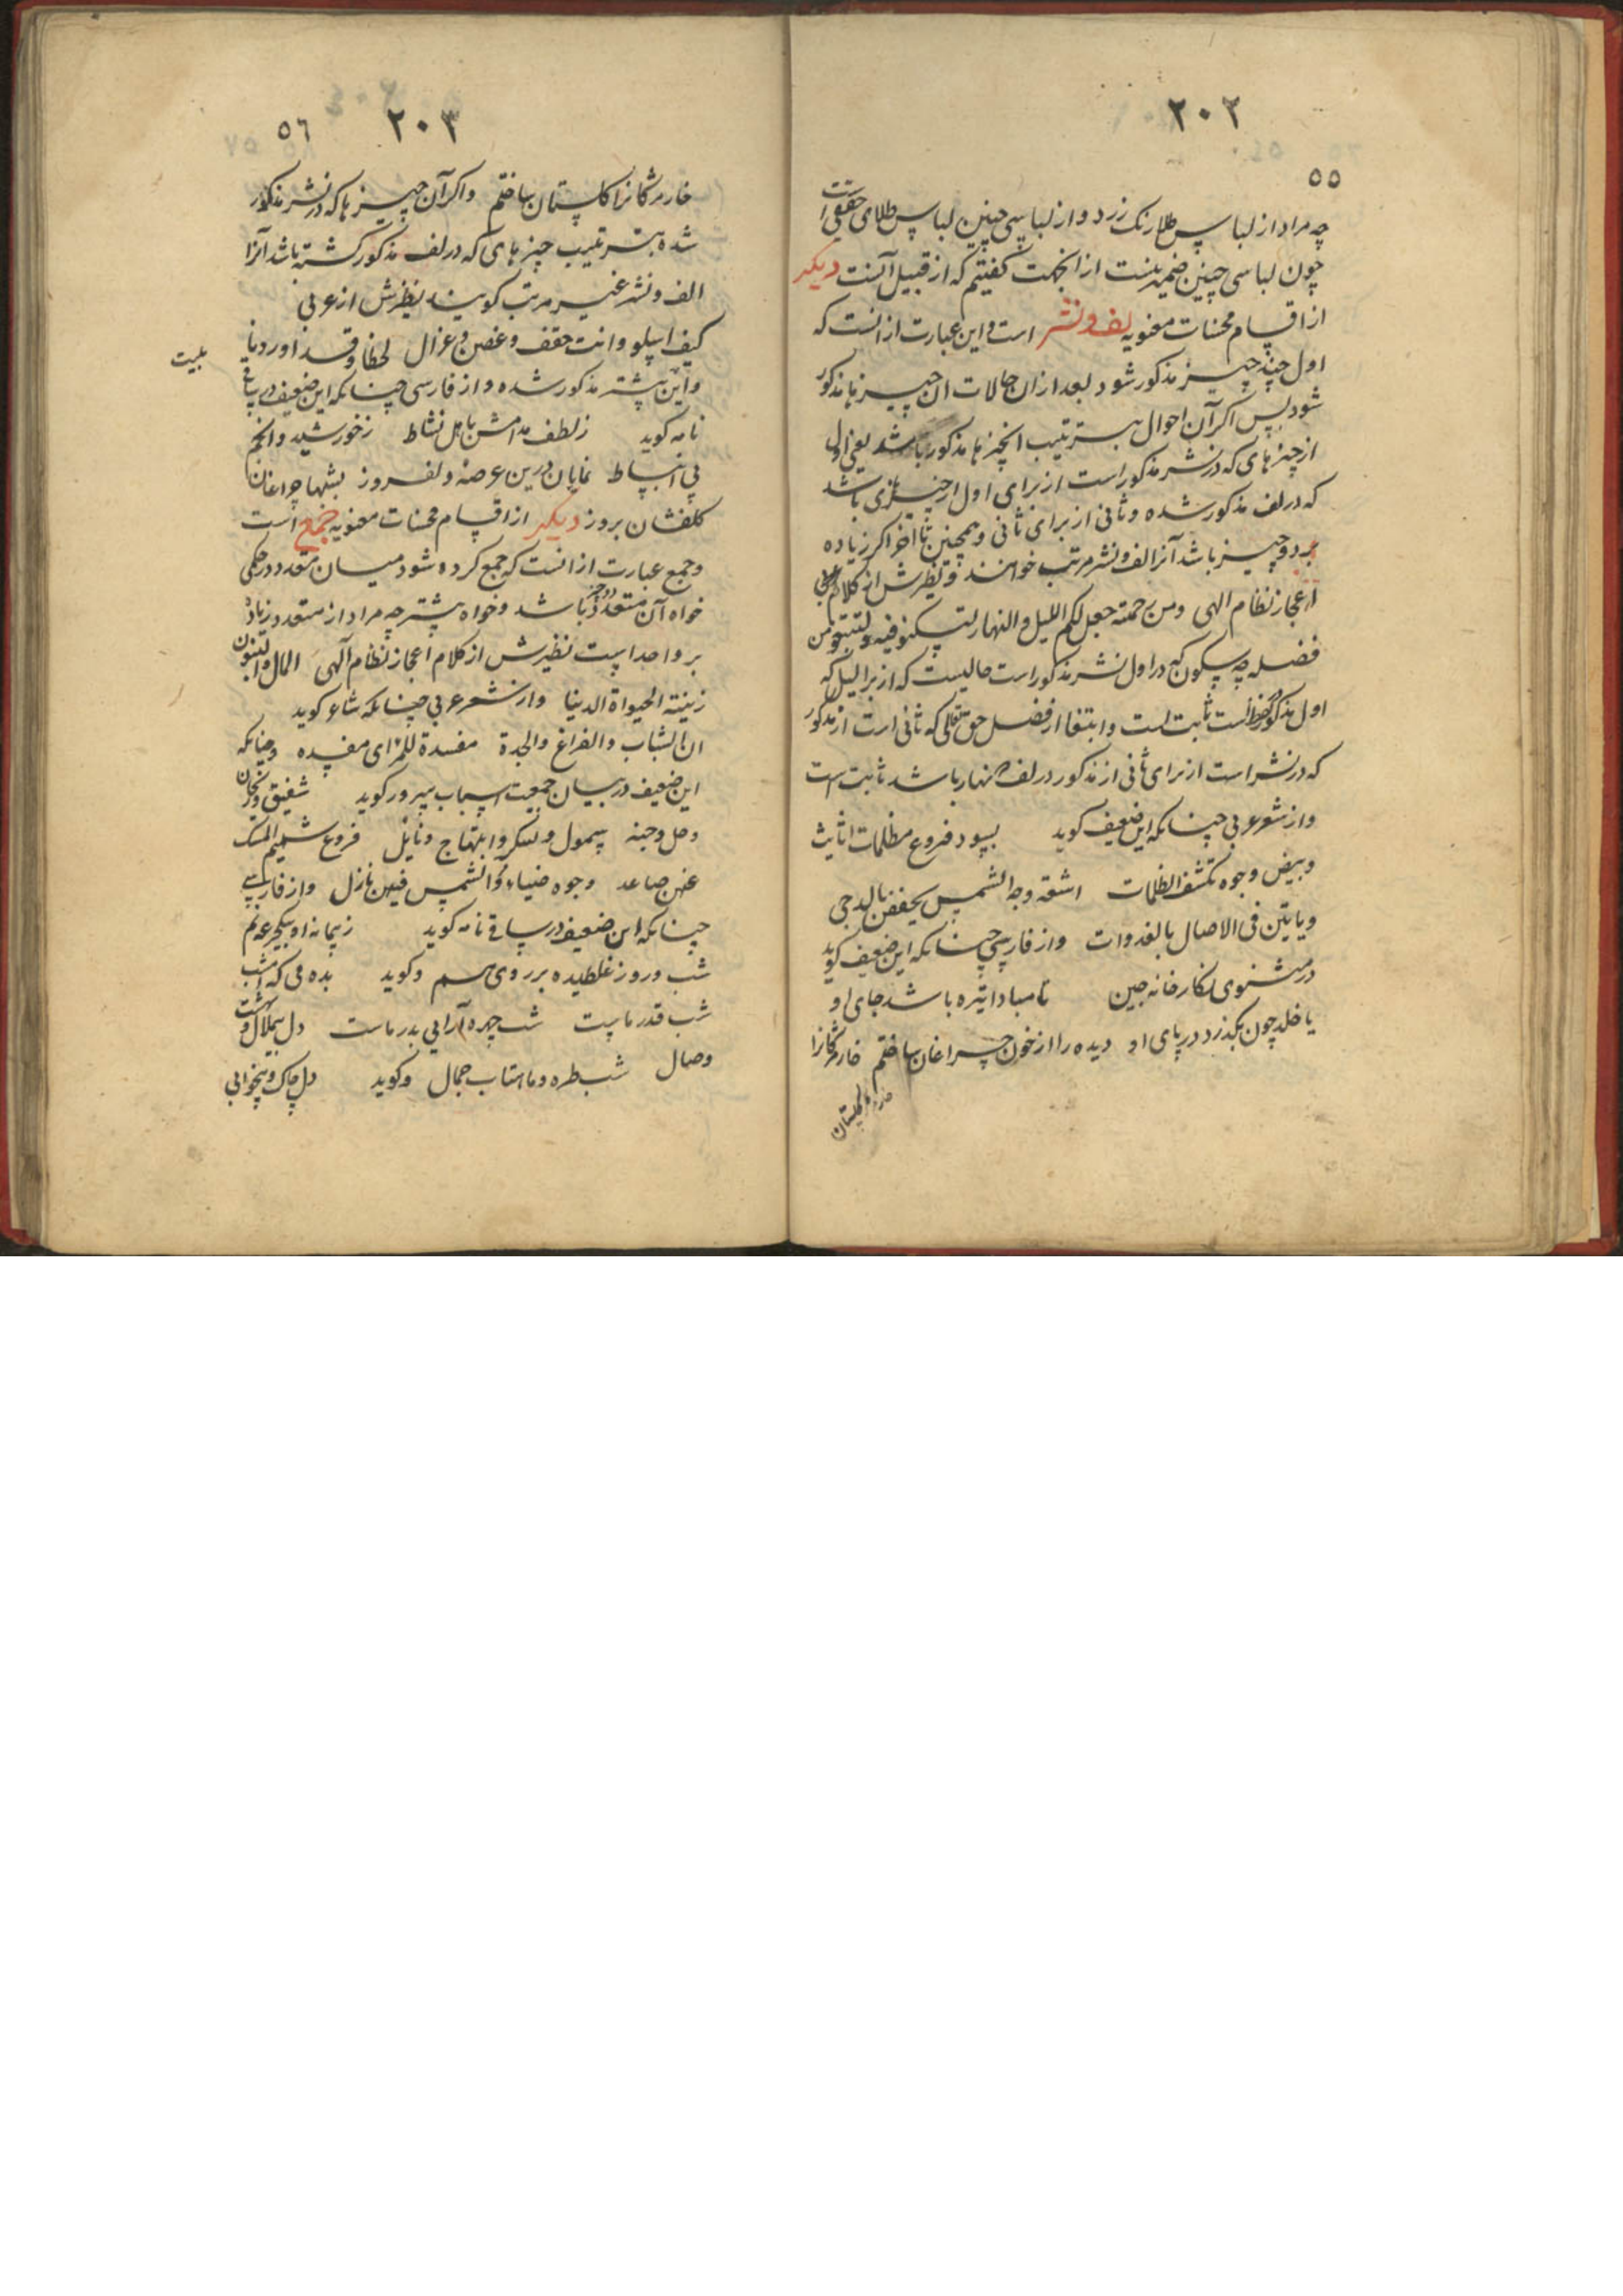 ٢٠٢
٥٥
چه مراد از لباس طلا رنک زرد و از لباسی چنین لباس طلای حقیقی است
چون لباسی چنین ضمیر نیست از انجهت کفتیم که از قبیل آنست دیکر
از اقسام محسنات معنویه لف و نشر است و این عبارت از انست که
اول چند چیز مذکور شود بعد ازان حالات ان چیزها مذکور
شود پس اکر آن احوال بترتیب انچیزها مذکور باشد یعنی اول
از چیزهای که در نشر مذکور است از برای اول از چیزهای باشد
که در لف مذکور شده و ثانی از برای ثانی و همچنین تا اخر اکر زیاده
بر دو چیز باشد آنرا لف و نشر مرتب خوانند و نظیرش از کلام
اعجاز نظام الهی ومن رحمته جعل لکم اللیل والنهار لتسکنوا فیه ولتبتغوا من
فضله چه سکون که در اول نشر مذکور است حالیست که از برای لیل که
اول مذکور است ثابت است و ابتغا از فضل حق تعالی که ثانی است از مذکور
که در نشر است از برای ثانی از مذکور در لف که نهار باشد ثابت است
و از شعر عربی چنانکه این ضعیف کوید بسود فروع مظلمات اثایث
وبیض وجوه تکشف الظلمات اشعة وجه الشمس یخففن بالدجی
ویاتین فی الاصال بالغدوات و از فارسی چنانکه این ضعیف کوید
در مثنوی نکارخانه چین تا مبادا تیره باشد جای او
یا خلد چون بکذرد در پای او دیده را از خون چراغان ساختم خار مژکانرا
٢٠٣ ٥٦
خار مژکانرا کلستان ساختم و اکر آن چیزها که در نشر مذکور
شده بترتیب چیزهای که در لف مذکور کشته باشد آنرا
الف و نشر غیر مرتب کویند نظیرش از عربی
کیف اسلو وانت حقف وغصن وغزال لحظا وقدا وردفا
بیت
و این پیشتر مذکور شده و از فارسی چنانکه این ضعیف در ساقی
نامه کوید ز لطف مدامش باهل نشاط ز خورشید و انجم
پی انبساط نمایان درین عرصهٔ دلفروز بشبها چراغان
کلفشان بروز دیکر از اقسام محسنات معنویه جمع است
و جمع عبارت از انست که جمع کرده شود میان متعدد در حکمی
خواه آن متعدد دو چیز باشد و خواه بیشتر چه مراد از متعدد زیاده
بر واحد است نظیرش از کلام اعجاز نظام آلهی المال والبنون
زینة الحیواة الدنیا و از شعر عربی چنانکه شاعر کوید
ان الشباب والفراغ والجدة مفسدة للمرٔ ای مفسده و چنانکه
این ضعیف در بیان جمعیت اسباب سرور کوید شفیق وریحان
وصل وجنه سمول وسکر وابتهاج ونایل فروع شمیم المسک
عنهن صاعد وجوه ضیاء الشمس فیهن نازل و از فارسی
چنانکه این ضعیف در ساقی نامه کوید ز پیمانه او بیکجرعه نم
شب و روز غلطیده بر روی هم و کوید بده می که امشب
شب قدر ماست شب چهره آرایی بدر ماست دل بیملال و بهشت
وصال شب طره و ماهتاب جمال و کوید دل چاک و بیخوابی